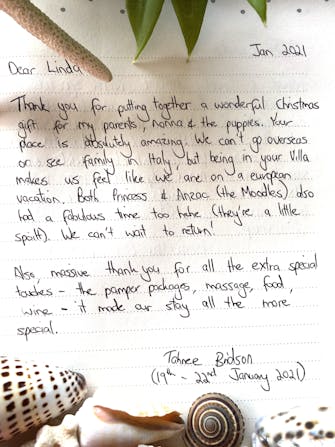 Jan 2021
Dear Linda
Thank you for putting together a wonderful Christmas
gift for my parents, nonna & the puppies. Your
place is absolutely amazing. We can't go overseas
or see family in Italy but being in your Villa
makes us feel like we are on a european
vacation. Both Princess & Anzac (the Moodles) also
had a fabulous time too hehe (they're a little
spoilt). We can't wait to return!
Also, massive thank you for all the extra special
touches - the pamper packages, massage, food,
wine - it made our stay all the more
special.
Tahnee Bridson
(19th - 22nd January 2021)